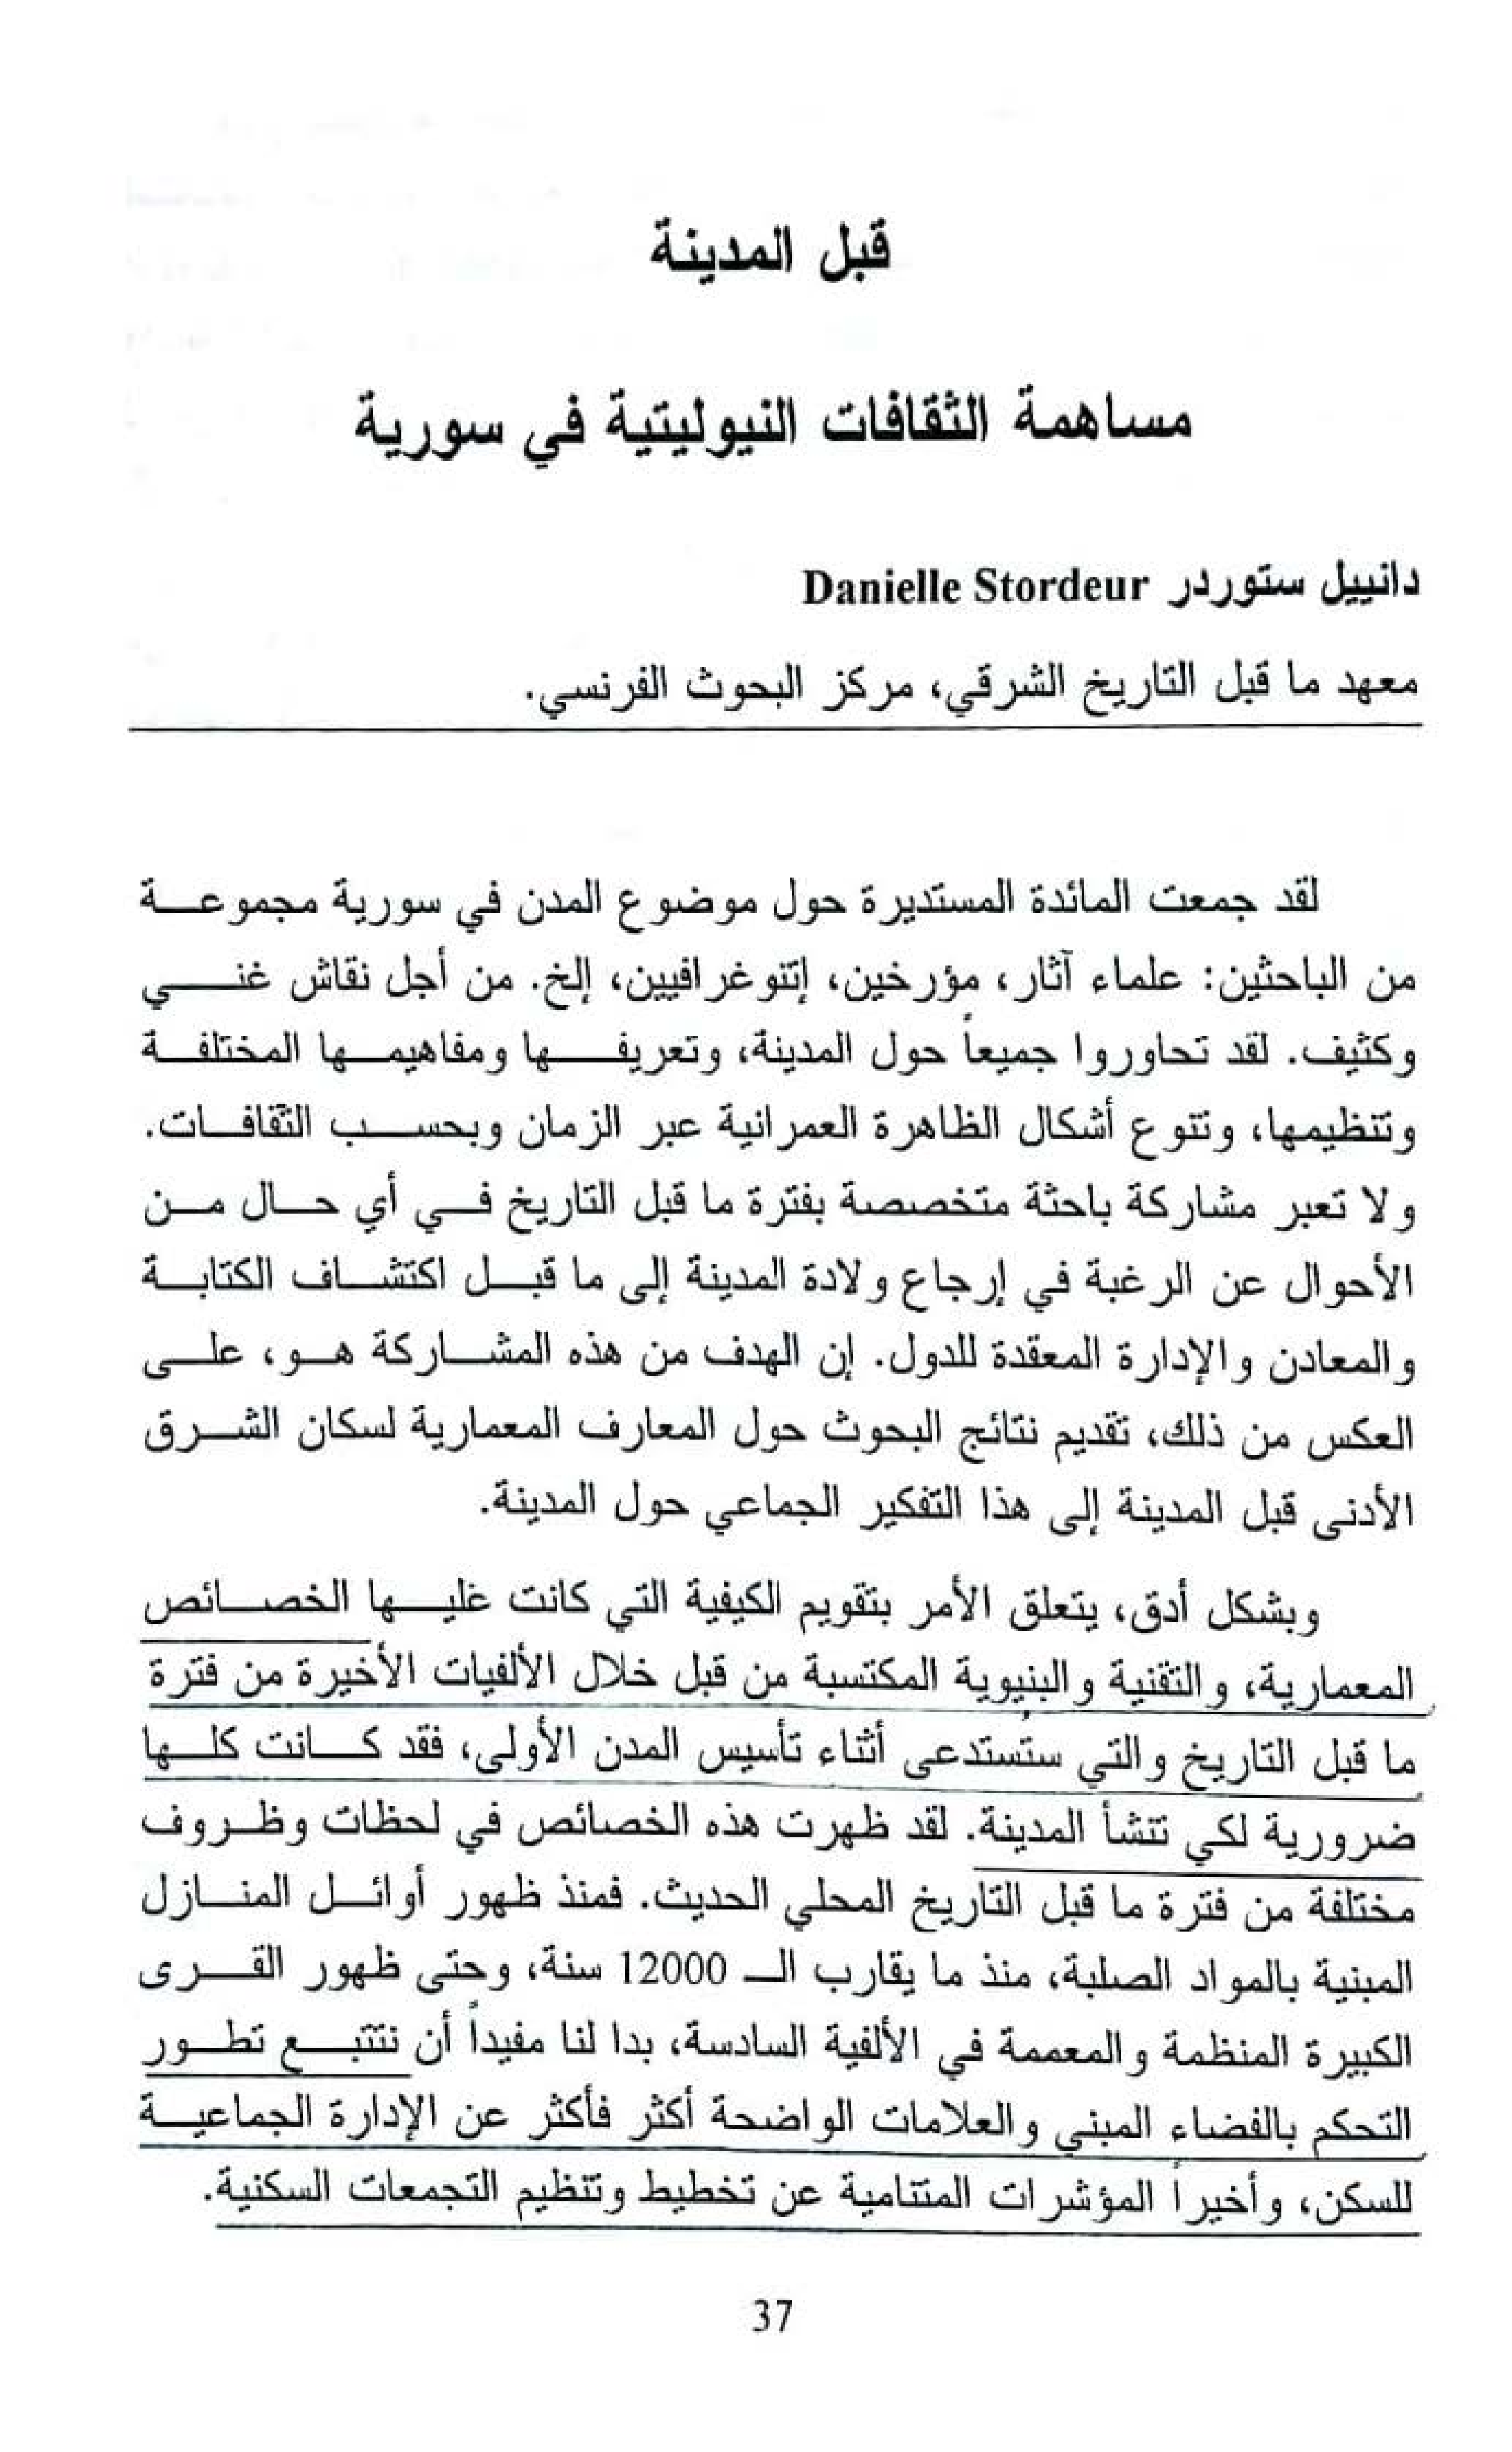 قبل المدينة
مساهمة الثقافات النيوليتية في سورية
دانييل ستوردر Danielle Stordeur
معهد ما قبل التاريخ الشرقي، مركز البحوث الفرنسي.
لقد جمعت المائدة المستديرة حول موضوع المدن في سورية مجموعة
من الباحثين: علماء آثار، مؤرخين، إتنوغرافيين، إلخ. من أجل نقاش غني
وكثيف. لقد تحاوروا جميعاً حول المدينة، وتعريفها ومفاهيمها المختلفة
وتنظيمها، وتنوع أشكال الظاهرة العمرانية عبر الزمان وبحسب الثقافات.
ولا تعبر مشاركة باحثة متخصصة بفترة ما قبل التاريخ في أي حال من
الأحوال عن الرغبة في إرجاع ولادة المدينة إلى ما قبل اكتشاف الكتابة
والمعادن والإدارة المعقدة للدول. إن الهدف من هذه المشاركة هو، على
العكس من ذلك، تقديم نتائج البحوث حول المعارف المعمارية لسكان الشرق
الأدنى قبل المدينة إلى هذا التفكير الجماعي حول المدينة.
وبشكل أدق، يتعلق الأمر بتقويم الكيفية التي كانت عليها الخصائص
المعمارية، والتقنية والبنيوية المكتسبة من قبل خلال الألفيات الأخيرة من فترة
ما قبل التاريخ والتي ستُستدعى أثناء تأسيس المدن الأولى، فقد كانت كلها
ضرورية لكي تنشأ المدينة. لقد ظهرت هذه الخصائص في لحظات وظروف
مختلفة من فترة ما قبل التاريخ المحلي الحديث. فمنذ ظهور أوائل المنازل
المبنية بالمواد الصلبة، منذ ما يقارب الـ 12000 سنة، وحتى ظهور القرى
الكبيرة المنظمة والمعممة في الألفية السادسة، بدا لنا مفيداً أن نتتبع تطور
التحكم بالفضاء المبني والعلامات الواضحة أكثر فأكثر عن الإدارة الجماعية
للسكن، وأخيراً المؤشرات المتنامية عن تخطيط وتنظيم التجمعات السكنية.
37